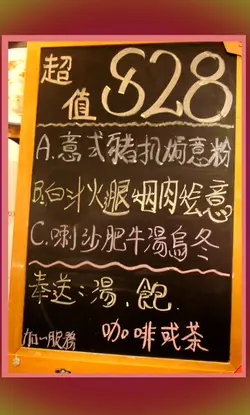 超值 $28
A.意式豬扒焗意粉
B.白汁火腿烟肉烩意
C.喇沙肥牛湯烏冬
奉送：湯，飽
咖啡或茶
加一服務